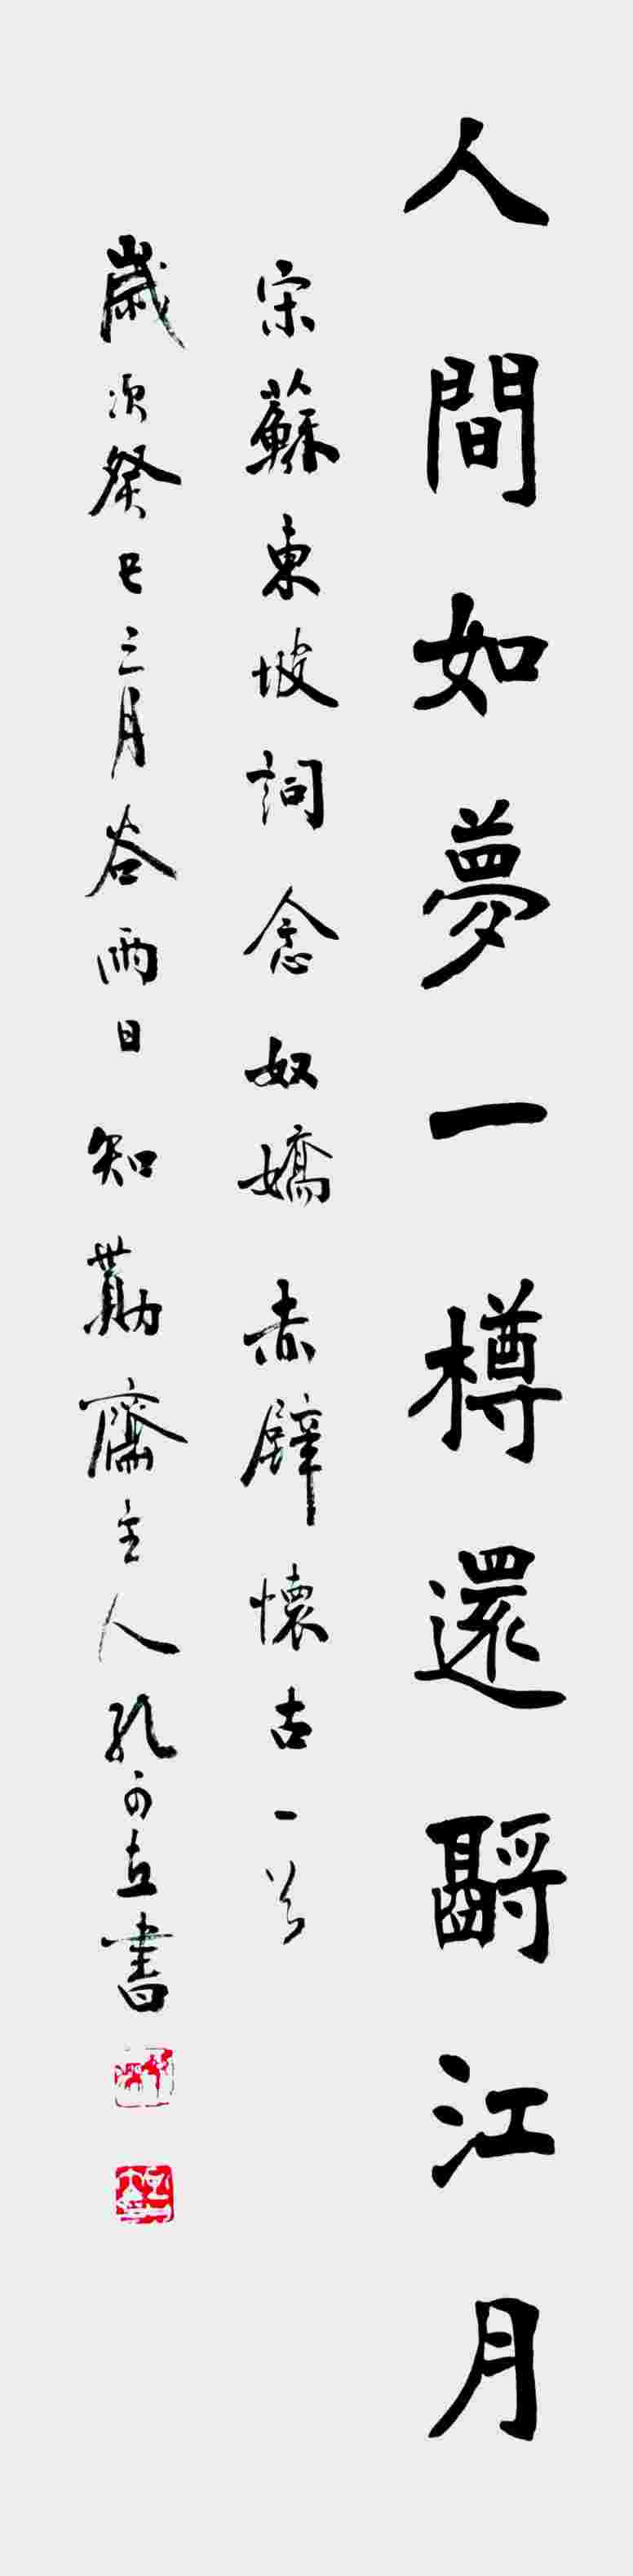 人間如夢一樽還酹江月
宋蘇東坡詞念奴嬌赤壁懷古一首
歲次癸巳三月谷雨日知勤齋主人孔可立書